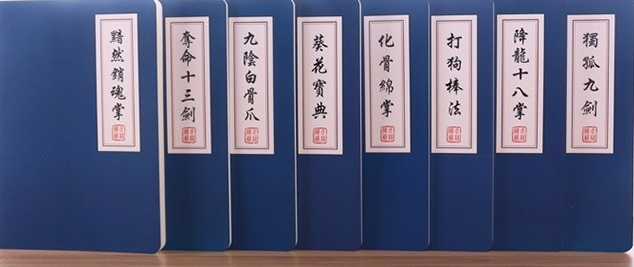 黯然銷魂掌
奪命十三劍
九陰白骨爪
葵花寶典
化骨綿掌
打狗棒法
降龍十八掌
獨孤九劍